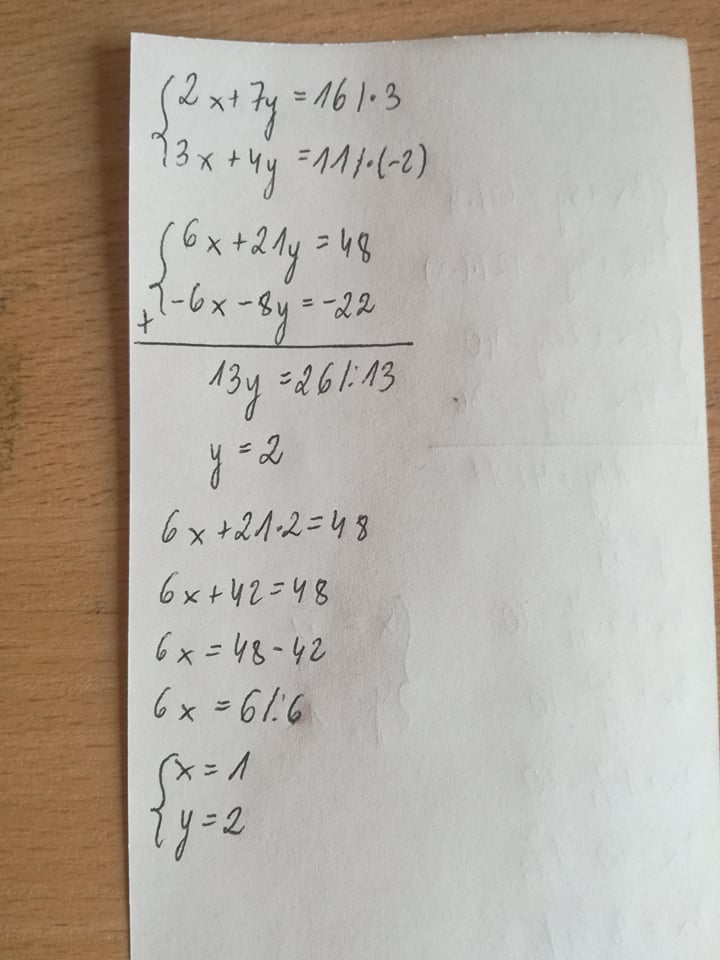 2x+7y=16/·3
3x+4y=11/·(-2)
6x+21y=48
-6x-8y=-22
+
13y=26/:13
y=2
6x+21·2=48
6x+42=48
6x=48-42
6x=6/:6
x=1
y=2